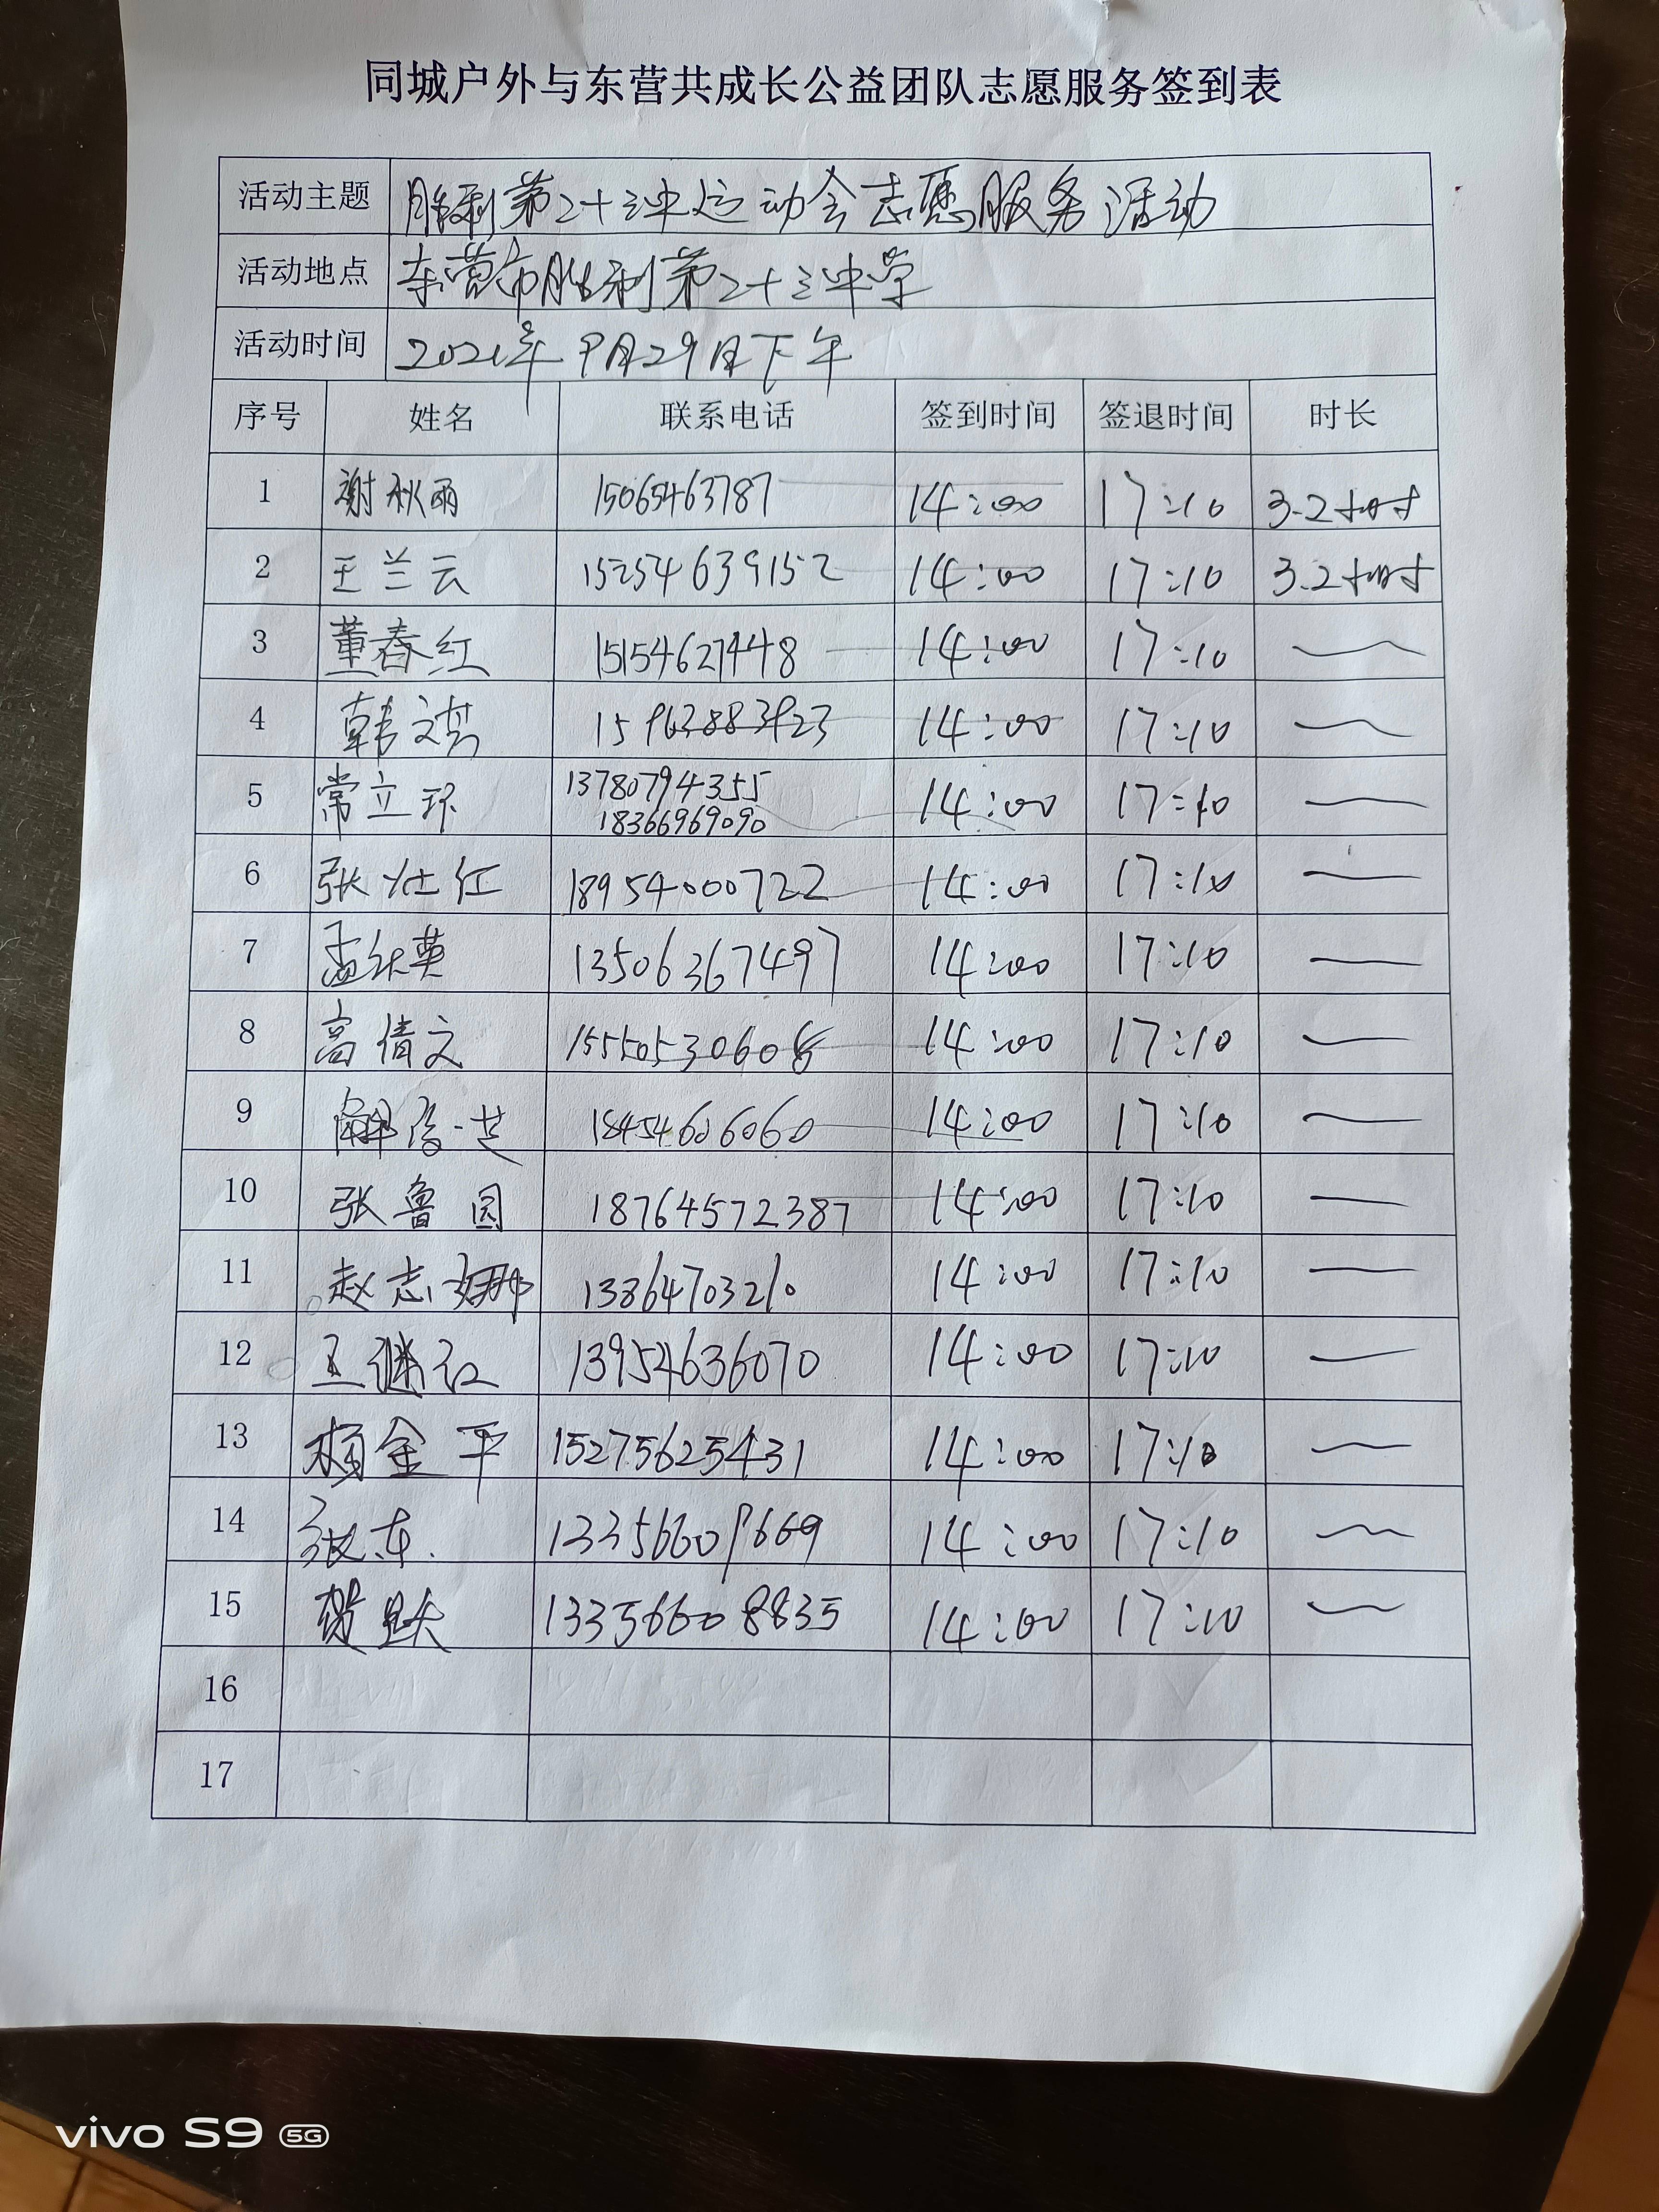 同城户外与东营共成长公益团队志愿服务签到表
活动主题 胜利第二十三中运动会志愿服务活动
活动地点 东营市胜利第二十三中学
活动时间 2021年9月29日下午
序号 姓名 联系电话 签到时间 签退时间 时长
1 谢秋雨 15065463787 14:00 17:10 3.2小时
2 王兰云 15254639152 14:00 17:10 3.2小时
3 董春红 15154627448 14:00 17:10
4 韩文 15963883923 14:00 17:10
5 常立环 13780794355 14:00 17:10
18366969090
6 张灶红 18954000722 14:00 17:10
7 孟红英 13506367497 14:00 17:10
8 高倩文 15550530608 14:00 17:10
9 18454606060 14:00 17:10
10 张鲁园 18764572387 14:00 17:10
11 赵志娜 13864703210 14:00 17:10
12 王继红 13954636070 14:00 17:10
13 杨金平 15275625431 14:00 17:10
14 张东 13356609669 14:00 17:10
15 13356608835 14:00 17:10
16
17
vivo S9 5G